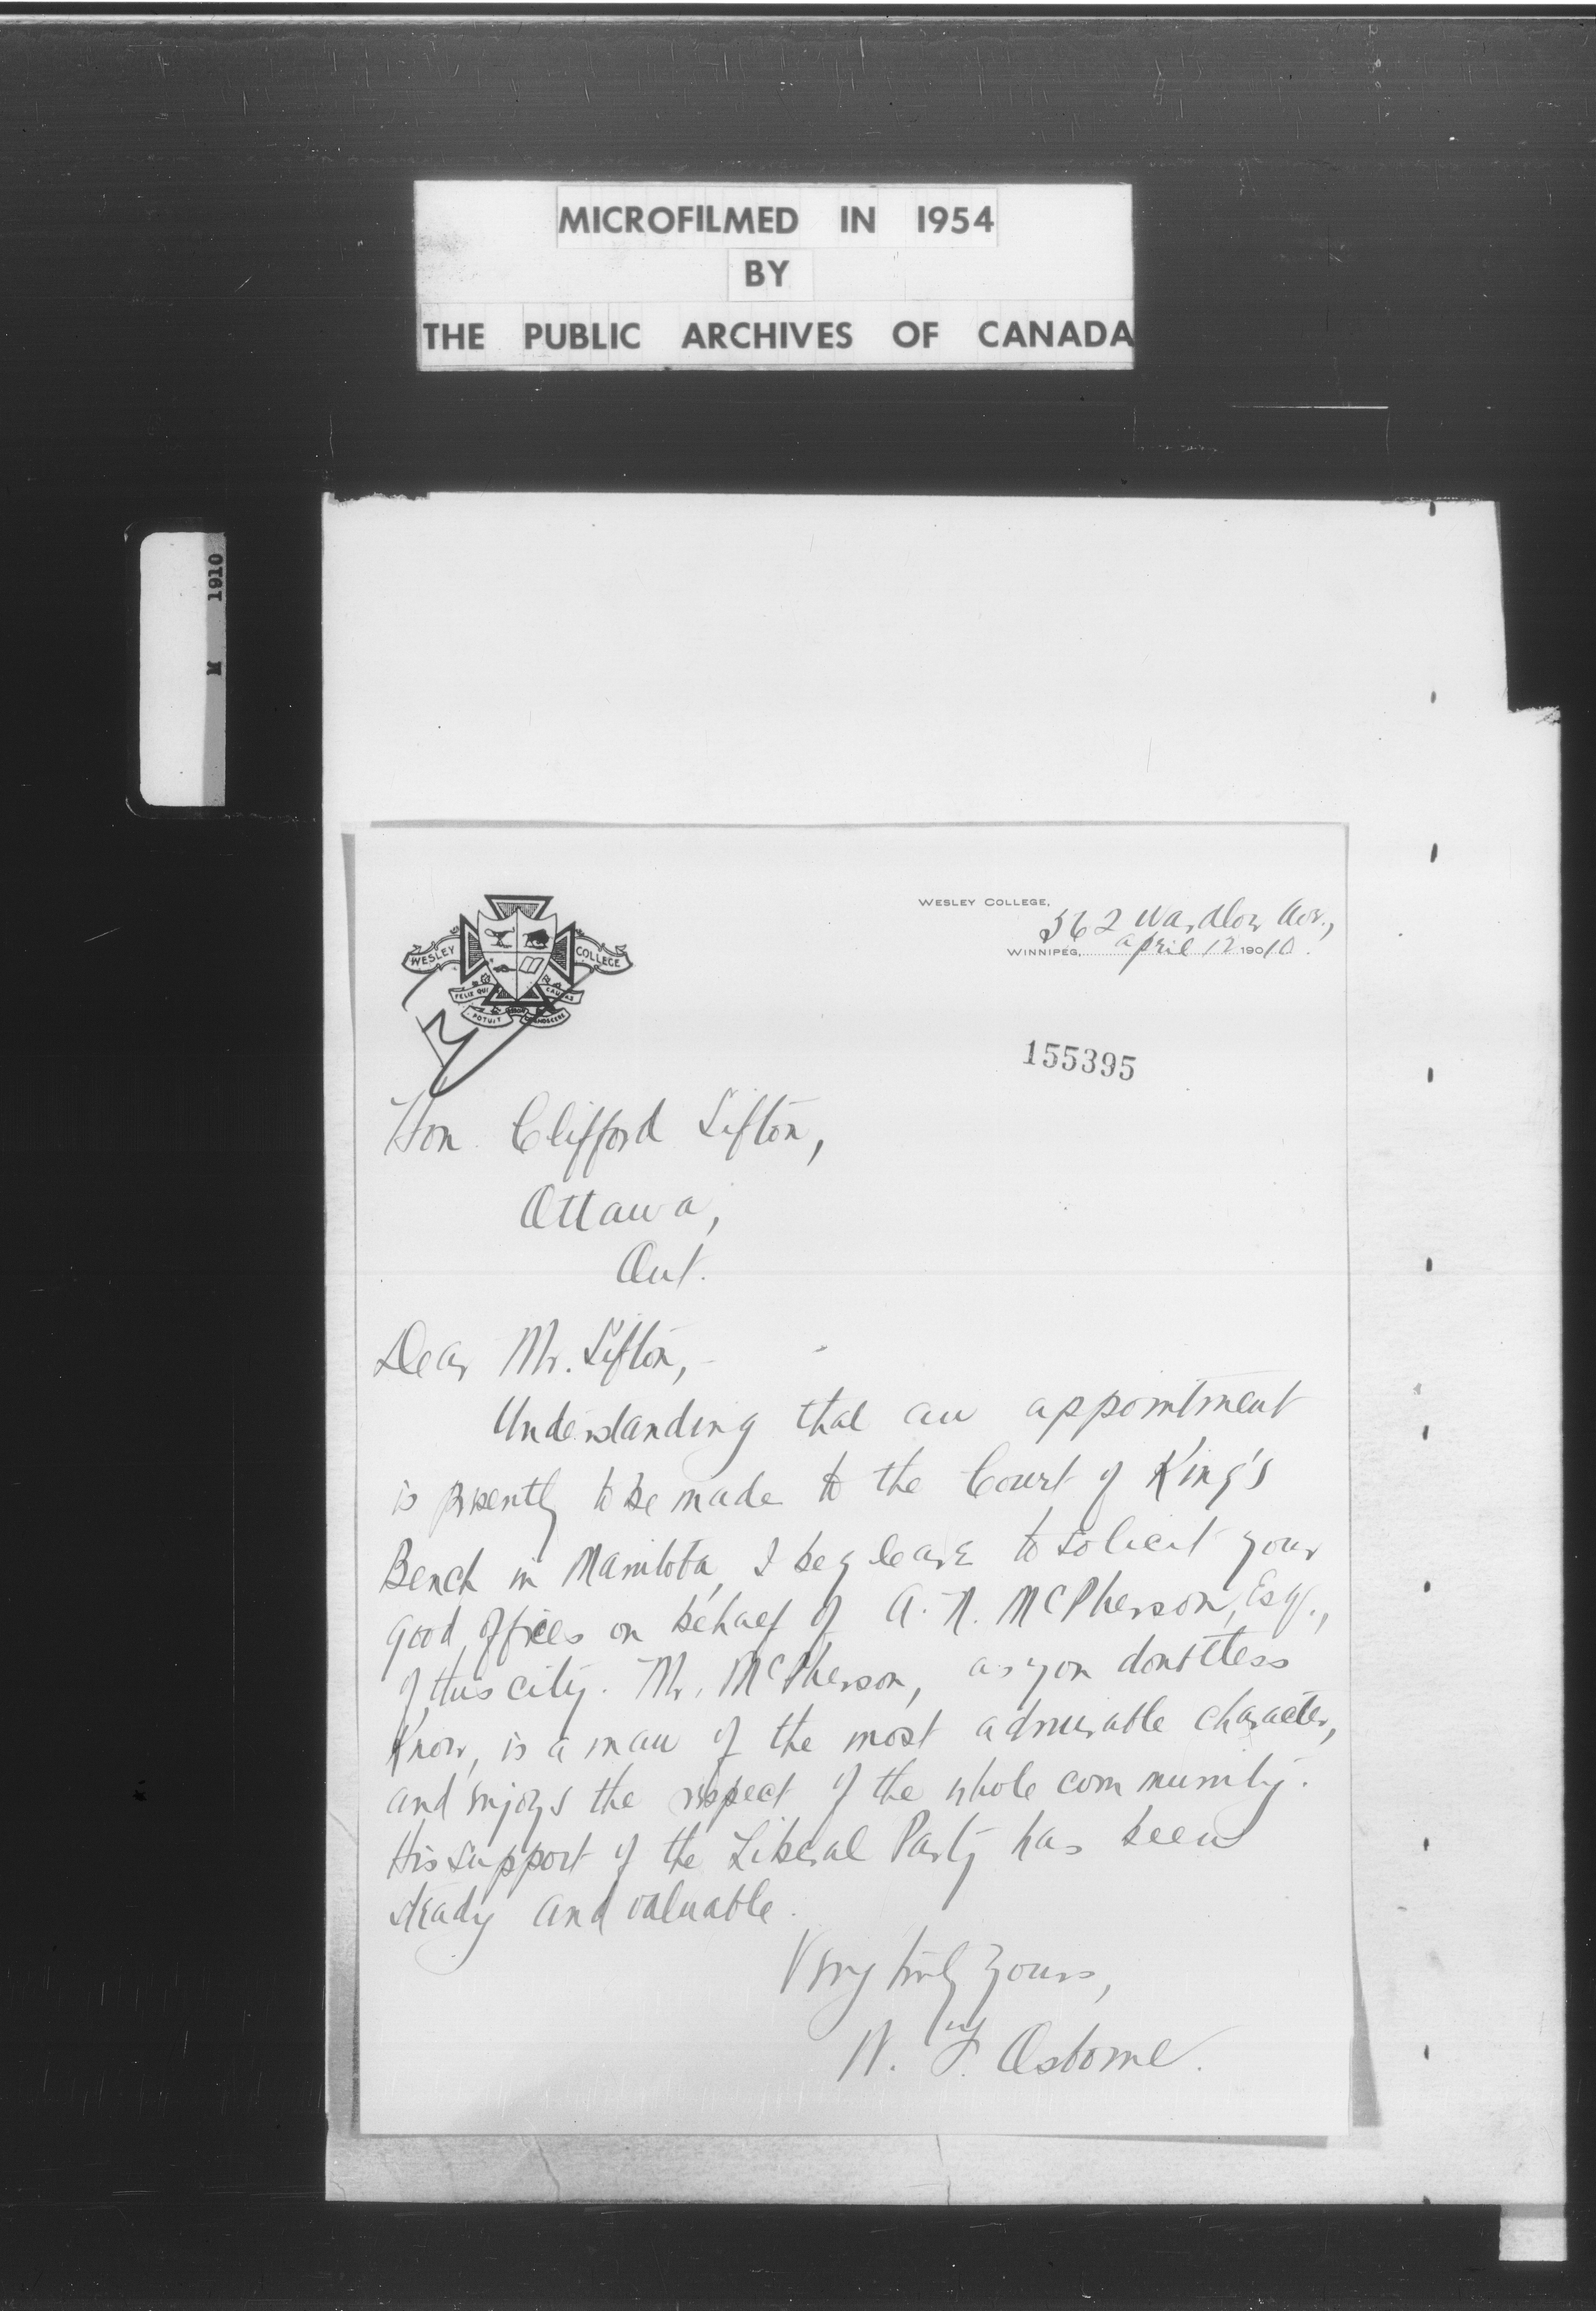 MICROFILMED IN 1954
BY
THE PUBLIC ARCHIVES OF CANADA
M 1910
WESLEY COLLEGE
FELIX QUI POTUIT CAUSAS
WESLEY COLLEGE,
362 Wardlow Ave.,
WINNIPEG, April 12 19010.
155395
Hon. Clifford Sifton,
Ottawa,
Ont.
Dear Mr. Sifton,-
Understanding that an appointment
is presently to be made to the Court of King's
Bench in Manitoba, I beg leave to solicit your
good offices on behalf of A. N. McPherson, Esq.,
of this city. Mr. McPherson, as you doubtless
know, is a man of the most admirable character,
and enjoys the respect of the whole community.
His support of the Liberal Party has been
steady and valuable.
Very truly yours,
W. F. Osborne.